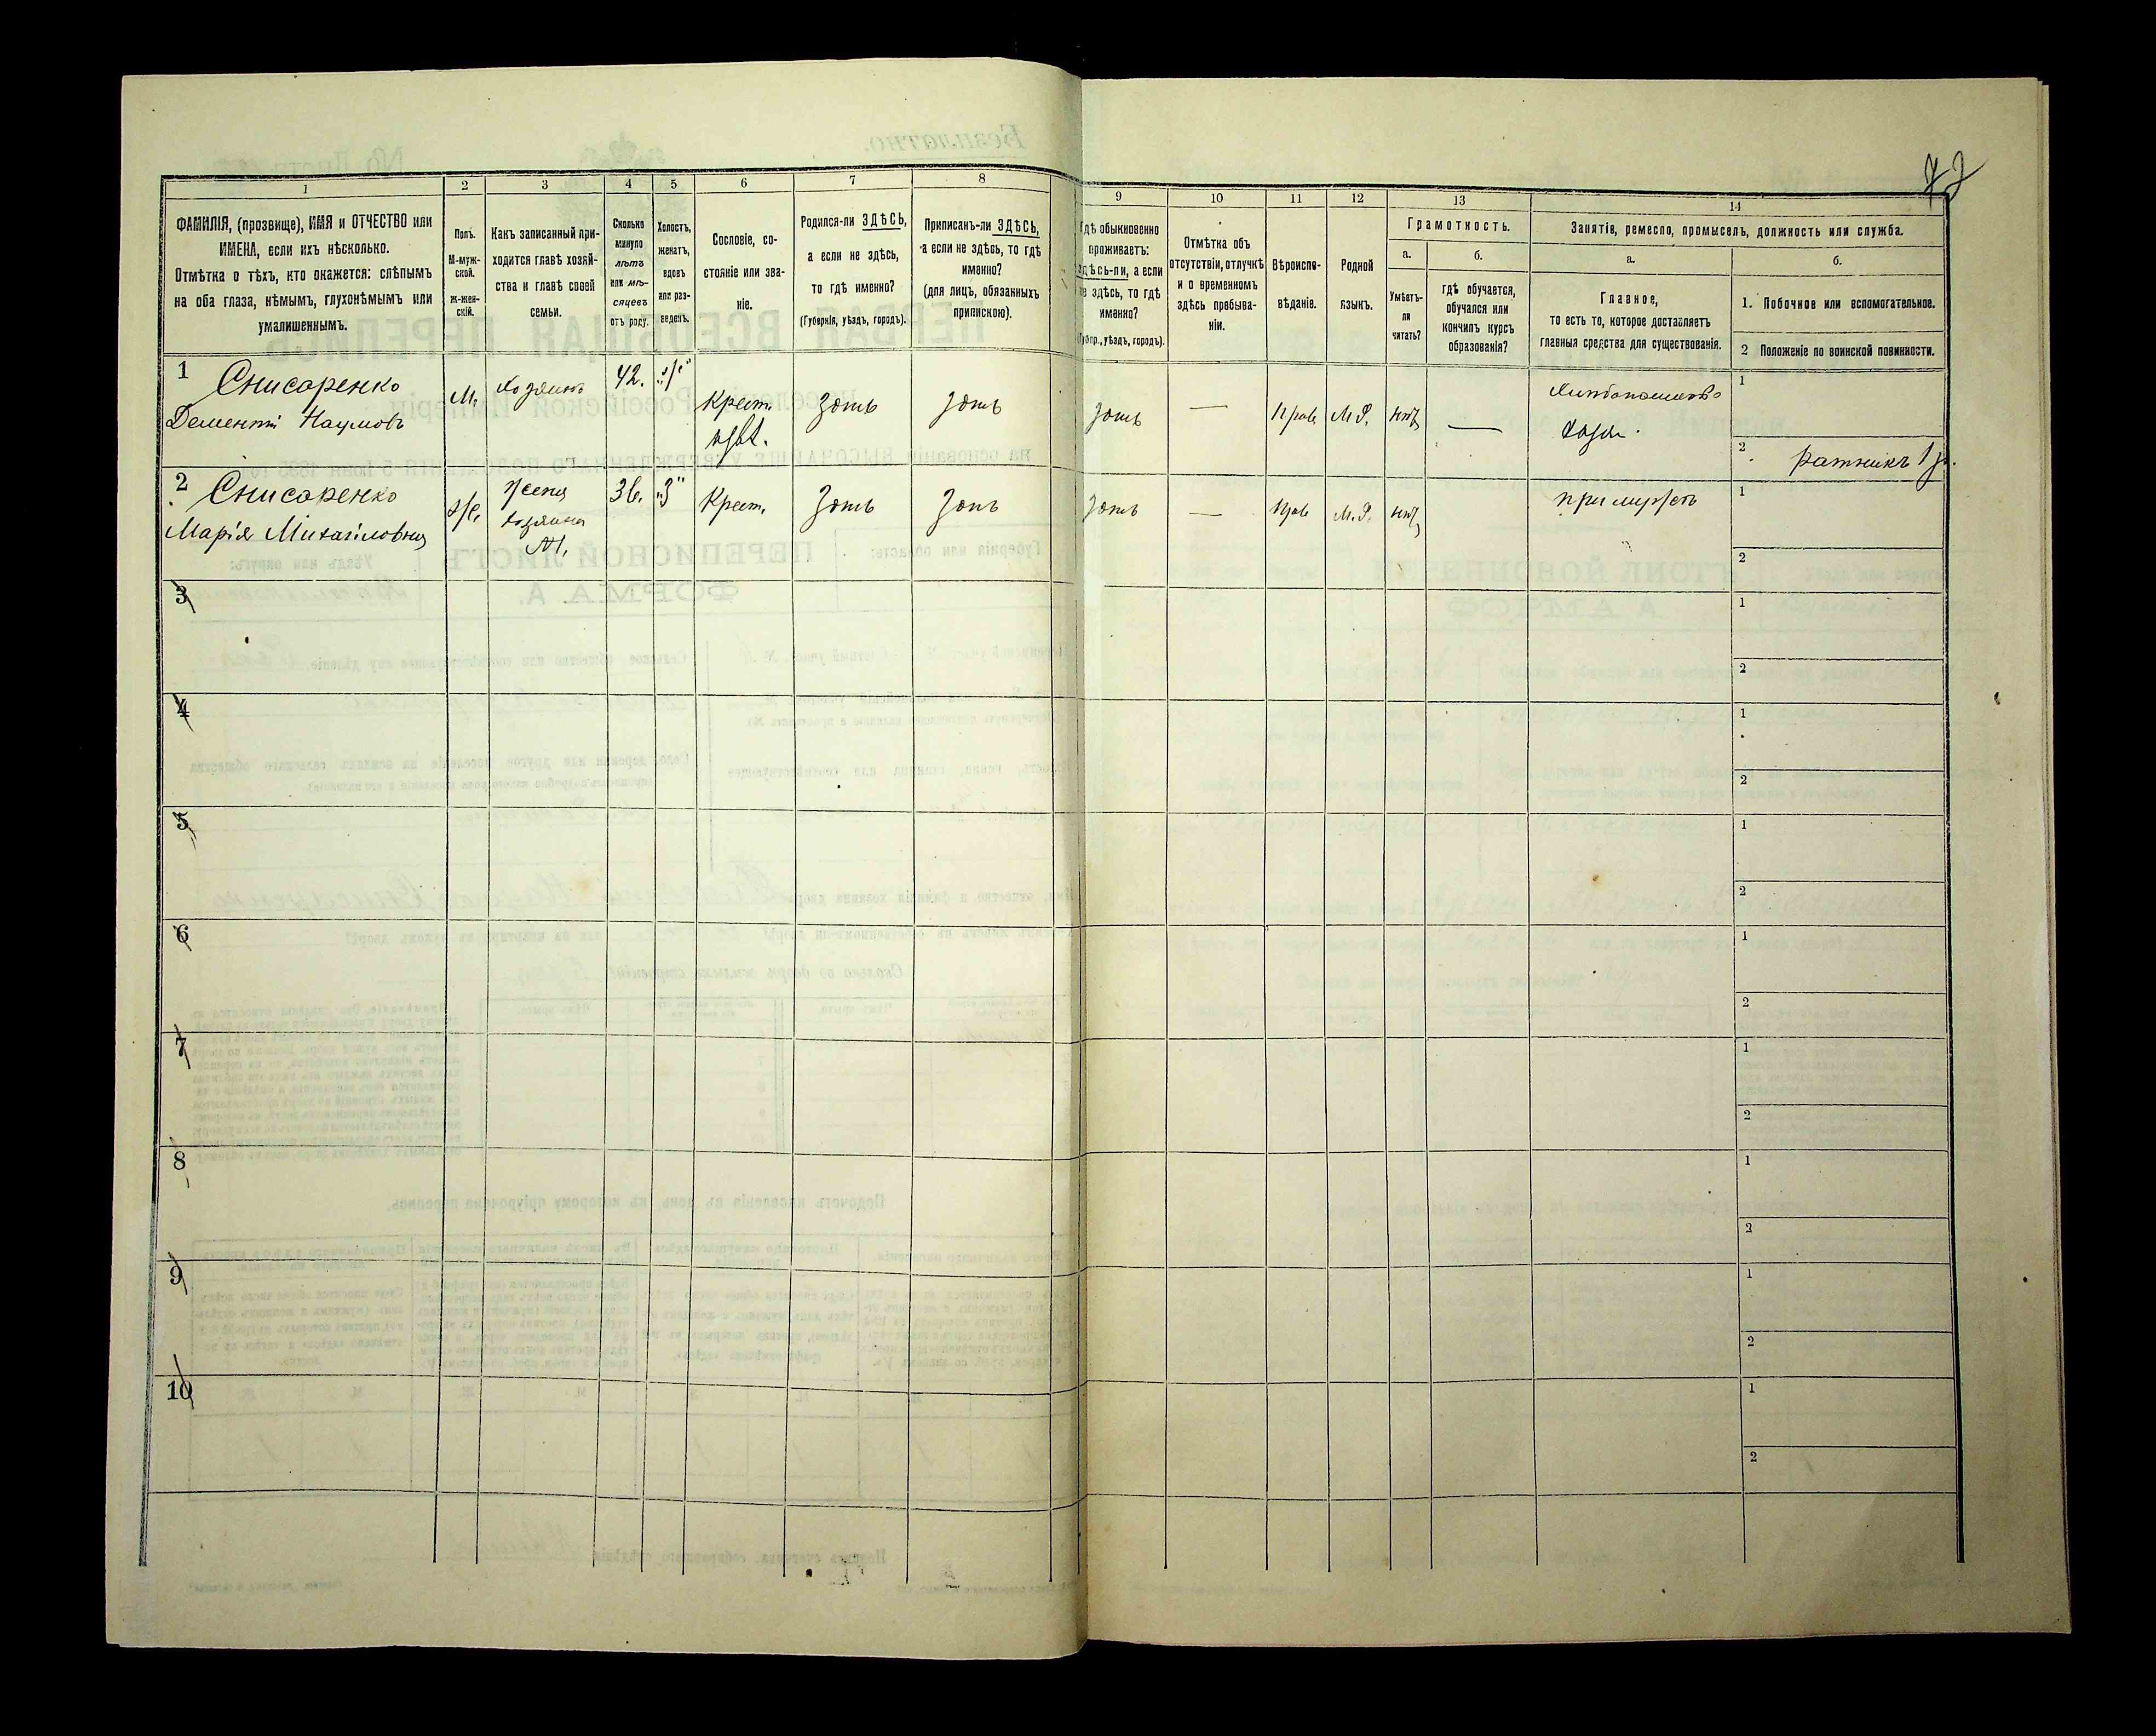 77
1
2
3
4
5
6
7
8
9
10
11
12
13
14
ФАМИЛІЯ, (прозвище), ИМЯ и ОТЧЕСТВО или
ИМЕНА, если ихъ нѣсколько.
Отмѣтка о тѣхъ, кто окажется: слѣпымъ
на оба глаза, нѣмымъ, глухонѣмымъ или
умалишеннымъ.
Полъ.
М-муж-
ской.
ж-жен-
скій.
Какъ записанный при-
ходится главѣ хозяй-
ства и главѣ своей
семьи.
Сколько
минуло
лѣтъ
или мѣ-
сяцевъ
отъ роду.
Холостъ,
женатъ,
вдовъ
или раз-
веденъ.
Сословіе, со-
стояніе или зва-
ніе.
Родился-ли ЗДѢСЬ,
а если не здѣсь,
то гдѣ именно?
(Губернія, уѣздъ, городъ).
Приписанъ-ли ЗДѢСЬ,
а если не здѣсь, то гдѣ
именно?
(для лицъ, обязанныхъ
припискою).
Гдѣ обыкновенно
проживаетъ:
здѣсь-ли, а если
не здѣсь, то гдѣ
именно?
(Губер., уѣздъ, городъ).
Отмѣтка объ
отсутствіи, отлучкѣ
и о временномъ
здѣсь пребыва-
ніи.
Вѣроиспо-
вѣданіе.
Родной
языкъ.
Грамотность.
а.
б.
Умѣетъ-
ли
читать?
гдѣ обучается,
обучался или
кончилъ курсъ
образованія?
Занятія, ремесло, промыселъ, должность или служба.
а.
б.
Главное,
то есть то, которое доставляетъ
главныя средства для существованія.
1. Побочное или вспомогательное.
2 Положеніе по воинской повинности.
1 Снисаренко
Дементій Наумовъ
М.
хозяинъ
42.
"ж"
Крест.
Здѣсь
Здѣсь
Здѣсь
—
Прав.
М.Р.
нѣтъ
—
Хлѣбопашество
1
2 ратникъ 1 р.
2 Снисаренко
Марія Михайловна
ж.
жена
хозяина
36.
"З"
Крест.
Здѣсь
Здѣсь
Здѣсь
—
Прав
М.Р.
нѣтъ
при мужѣ
1
2
3
1
2
4
1
2
5
1
2
6
1
2
7
1
2
8
1
2
9
1
2
10
1
2